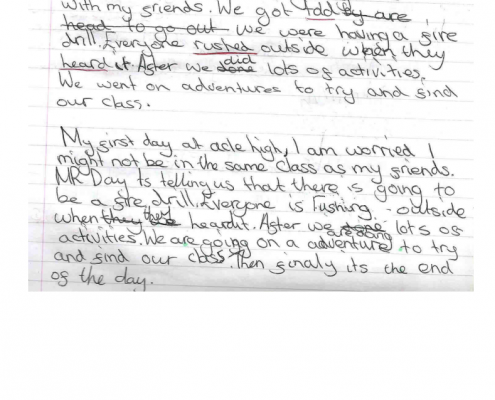 with my friends. We got told by are
head to go out we were having a fire
drill. Everyone rushed outside when they
heard it. After we did done lots of activities.
We went on adventures to try and find
our class.
My first day at acle high, I am worried I
might not be in the same class as my friends.
MR Day is telling us that there is going to
be a fire drill. Everyone is rushing outside
when they they heard it. After we are doing done lots of
activities. We are going on a adventure to try
and find our class. Then finaly its the end
of the day.